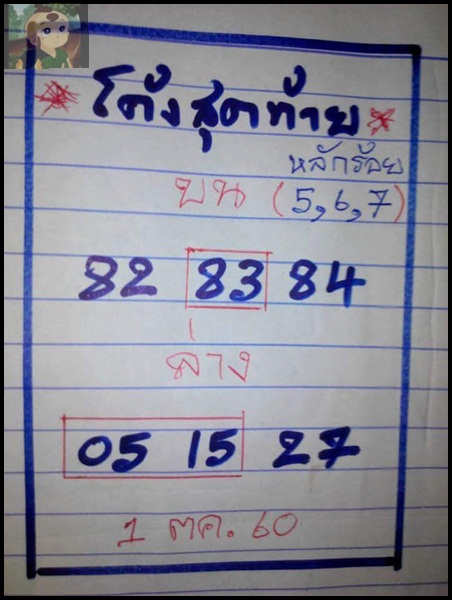 โค้งสุดท้าย
หลักร้อย
บน (5,6,7)
82 83 84
ล่าง
05 15 27
1 ตค. 60